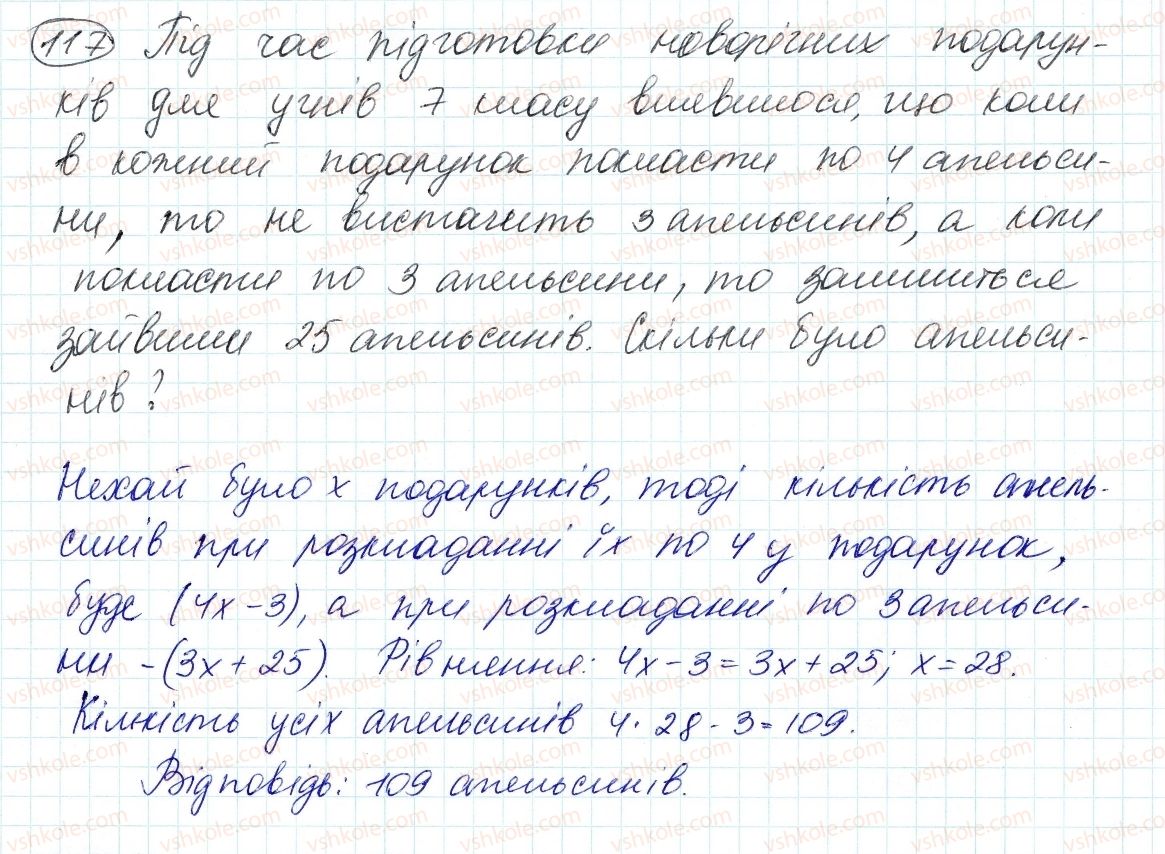 117 Під час підготовки новорічних подарун-
ків для учнів 7 класу виявилося, що коли
в кожний подарунок покласти по 4 апельси-
ни, то не вистачить 3 апельсинів, а коли
покласти по 3 апельсини, то залишиться
зайвими 25 апельсинів. Скільки було апельси-
нів?
Нехай було x подарунків, тоді кількість апель-
синів при розкладанні їх по 4 у подарунок,
буде (4x-3), а при розкладанні по 3 апельси-
ни -(3x+25). Рівняння: 4x-3=3x+25; x=28.
Кількість усіх апельсинів 4·28-3=109.
Відповідь: 109 апельсинів.
vshkole.com